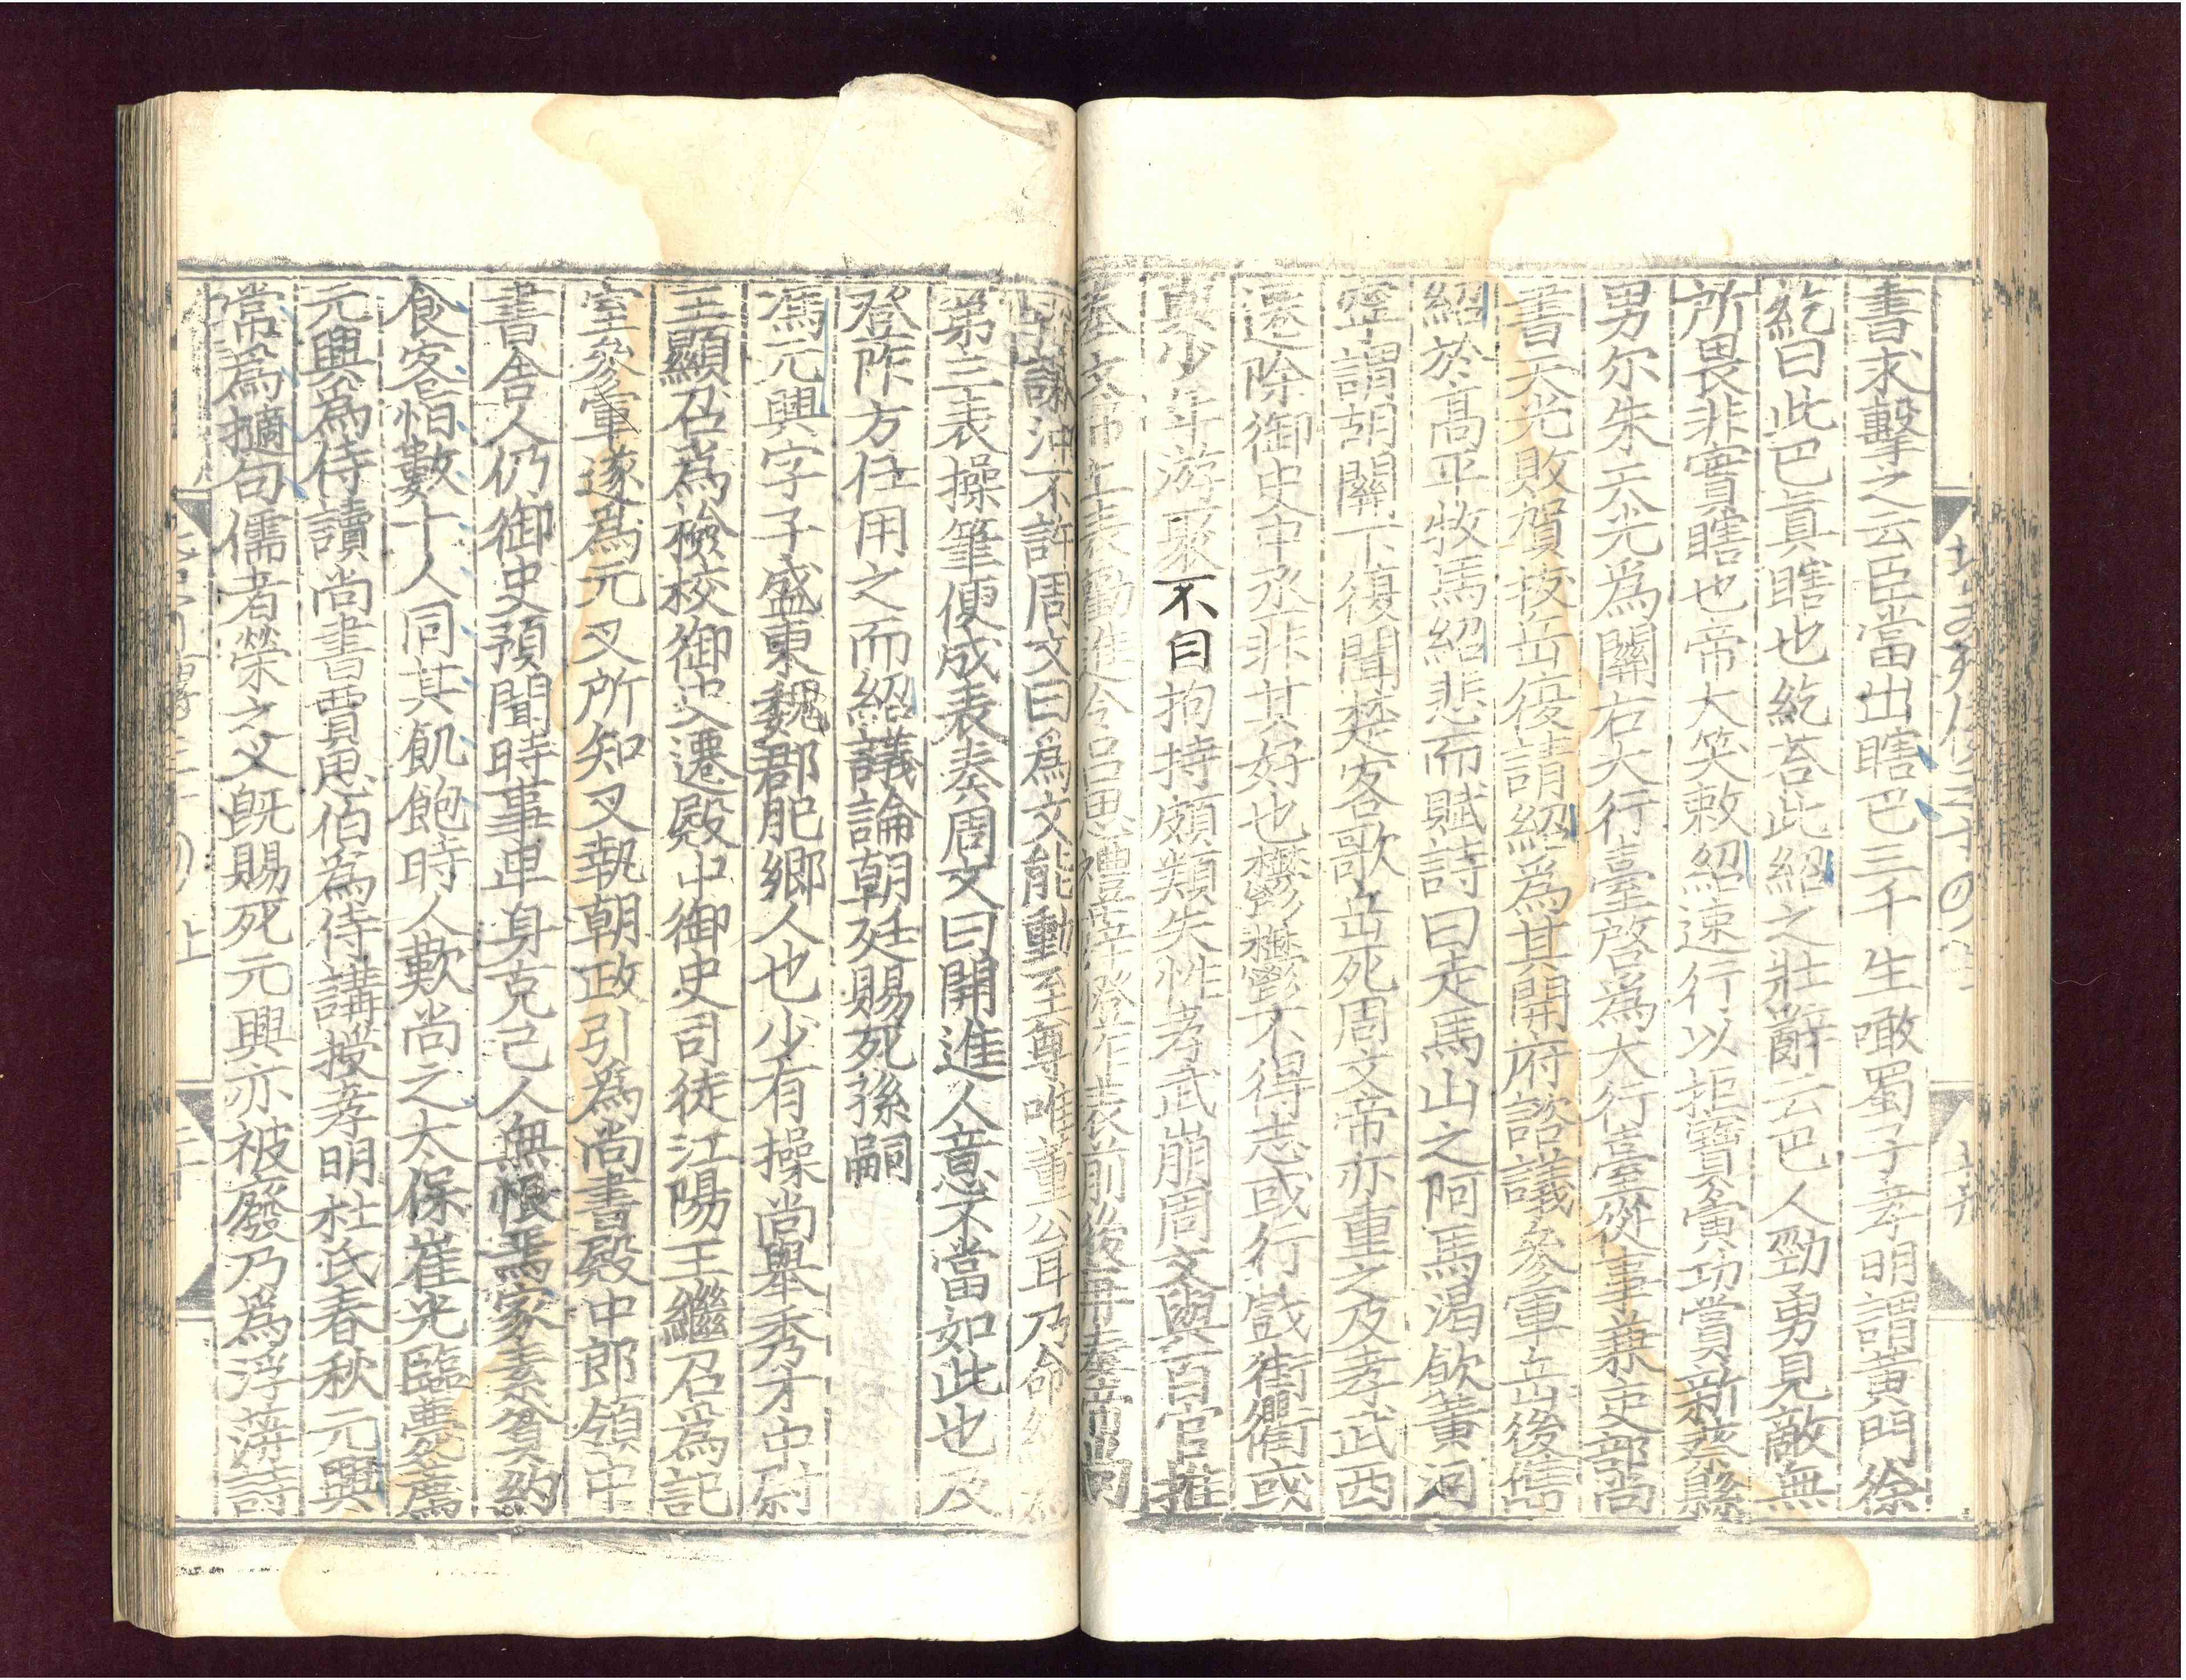 書求擊之云臣當出瞎巴三千生噉蜀子孝明謂黃門徐
紇曰此巴真瞎也紇荅此紹之壯辭云巴人勁勇見敵無
所畏非實瞎也帝大笑敕紹速行以拒寶夤功賞新蔡縣
男尓朱天光為關右大行臺啓為大行臺從事兼吏部尚
書天光敗賀拔岳復請紹為其開府諮議參軍岳後携
紹於高平牧馬紹悲而賦詩曰走馬山之阿馬渴飲黃河
寧謂胡關下復聞楚客歌岳死周文帝亦重之及孝武西
遷除御史中丞非其好也鬱鬱不得志或行戲街衢或
與少年游聚不自拘持頗類失性孝武崩周文與百官推
奉文帝上表勸進令呂思禮薛憕作表前後再奉帝尚
執謙沖不許周文曰為文能動至尊唯董公耳乃命紹為
第三表操筆便成表奏周文曰開進人意不當如此也及
登祚方任用之而紹議論朝廷賜死孫嗣
馮元興字子盛東魏郡肥鄉人也少有操尚舉秀才中尉
王顯召為檢校御史遷殿中御史司徒江陽王繼召為記
室參軍遂為元叉所知叉執朝政引為尚書殿中郎領中
書舍人仍御史預聞時事卑身克己人無恨焉家素貧約
食客恒數十人同其飢飽時人歎尚之太保崔光臨薨薦
元興為侍讀尚書賈思伯為侍講授孝明杜氏春秋元興
常為擿句儒者榮之叉旣賜死元興亦被廢乃為浮萍詩